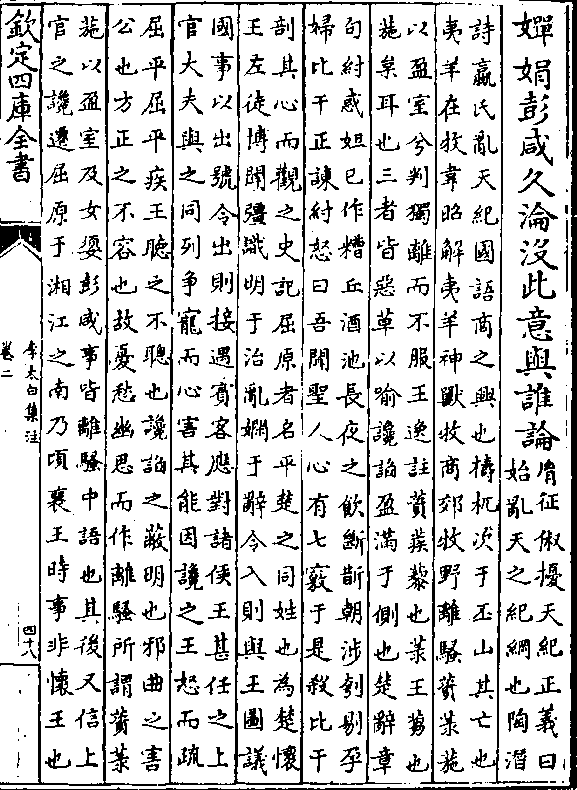 嬋娟彭咸久淪没此意與誰論
胥征俶擾天紀正義曰
始亂天之紀綱也陶潛
詩嬴氏亂天紀國語商之興也檮杌次于丕山其亡也
夷羊在牧韋昭解夷羊神獸牧商郊牧野離騷薋菉葹
以盈室兮判獨離而不服王逸註薋蒺藜也菉王芻也
葹枲耳也三者皆惡草以喻讒諂盈滿于側也楚辭章
句紂惑妲己作糟丘酒池長夜之飲斷斮朝涉刳剔孕
婦比干正諫紂怒曰吾聞聖人心有七竅于是殺比干
剖其心而觀之史記屈原者名平楚之同姓也為楚懷
王左徒博聞彊識明于治亂嫺于辭令入則與王圖議
國事以出號令出則接遇賓客應對諸侯王甚任之上
官大夫與之同列争寵而心害其能因讒之王怒而疏
屈平屈平疾王聽之不聰也讒諂之蔽明也邪曲之害
公也方正之不容也故憂愁幽思而作離騷所謂薋菉
葹以盈室及女嬃彭咸事皆離騷中語也其後又信上
官之讒遷屈原于湘江之南乃頃襄王時事非懷王也
欽定四庫全書
李太白集注
卷二
四十八